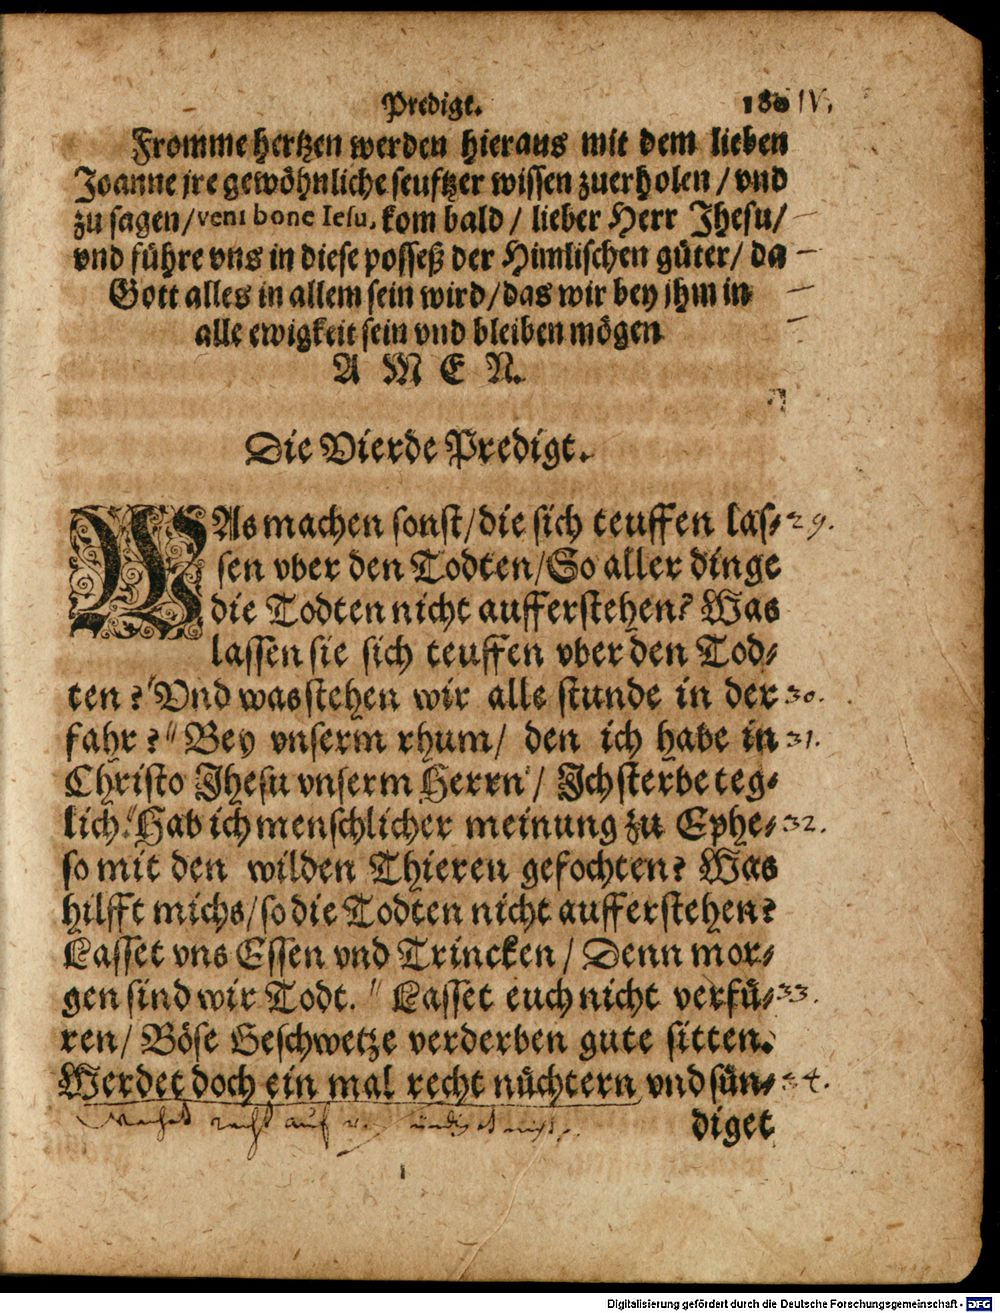 Predigt. 180 IV.
Fromme hertzen werden hieraus mit dem lieben
Joanne jre gewöhnliche seufftzer wissen zuerholen / vnd
zu sagen / veni bone Iesu, kom bald / lieber Herr Jhesu /
vnd führe vns in diese posseß der Himlischen güter / da
Gott alles in allem sein wird / das wir bey jhm in
alle ewigkeit sein vnd bleiben mögen
A M E N.
Die Vierde Predigt.
WAs machen sonst / die sich teuffen las⸗ 29.
sen vber den Todten / So aller dinge
die Todten nicht aufferstehen? Was
lassen sie sich teuffen vber den Tod⸗
ten? Vnd was stehen wir alle stunde in der 30.
fahr? Bey vnserm rhum / den ich habe in 31.
Christo Jhesu vnserm Herrn / Ich sterbe teg⸗
lich. Hab ich menschlicher meinung zu Ephe⸗ 32.
so mit den wilden Thieren gefochten? Was
hilfft michs / so die Todten nicht aufferstehen?
Lasset vns Essen vnd Trincken / Denn mor⸗
gen sind wir Todt. Lasset euch nicht verfü⸗ 33.
ren / Böse Geschwetze verderben gute sitten.
Werdet doch ein mal recht nüchtern vnd sün⸗ 34.
Wachet recht auf
diget
Digitalisierung gefördert durch die Deutsche Forschungsgemeinschaft - DFG